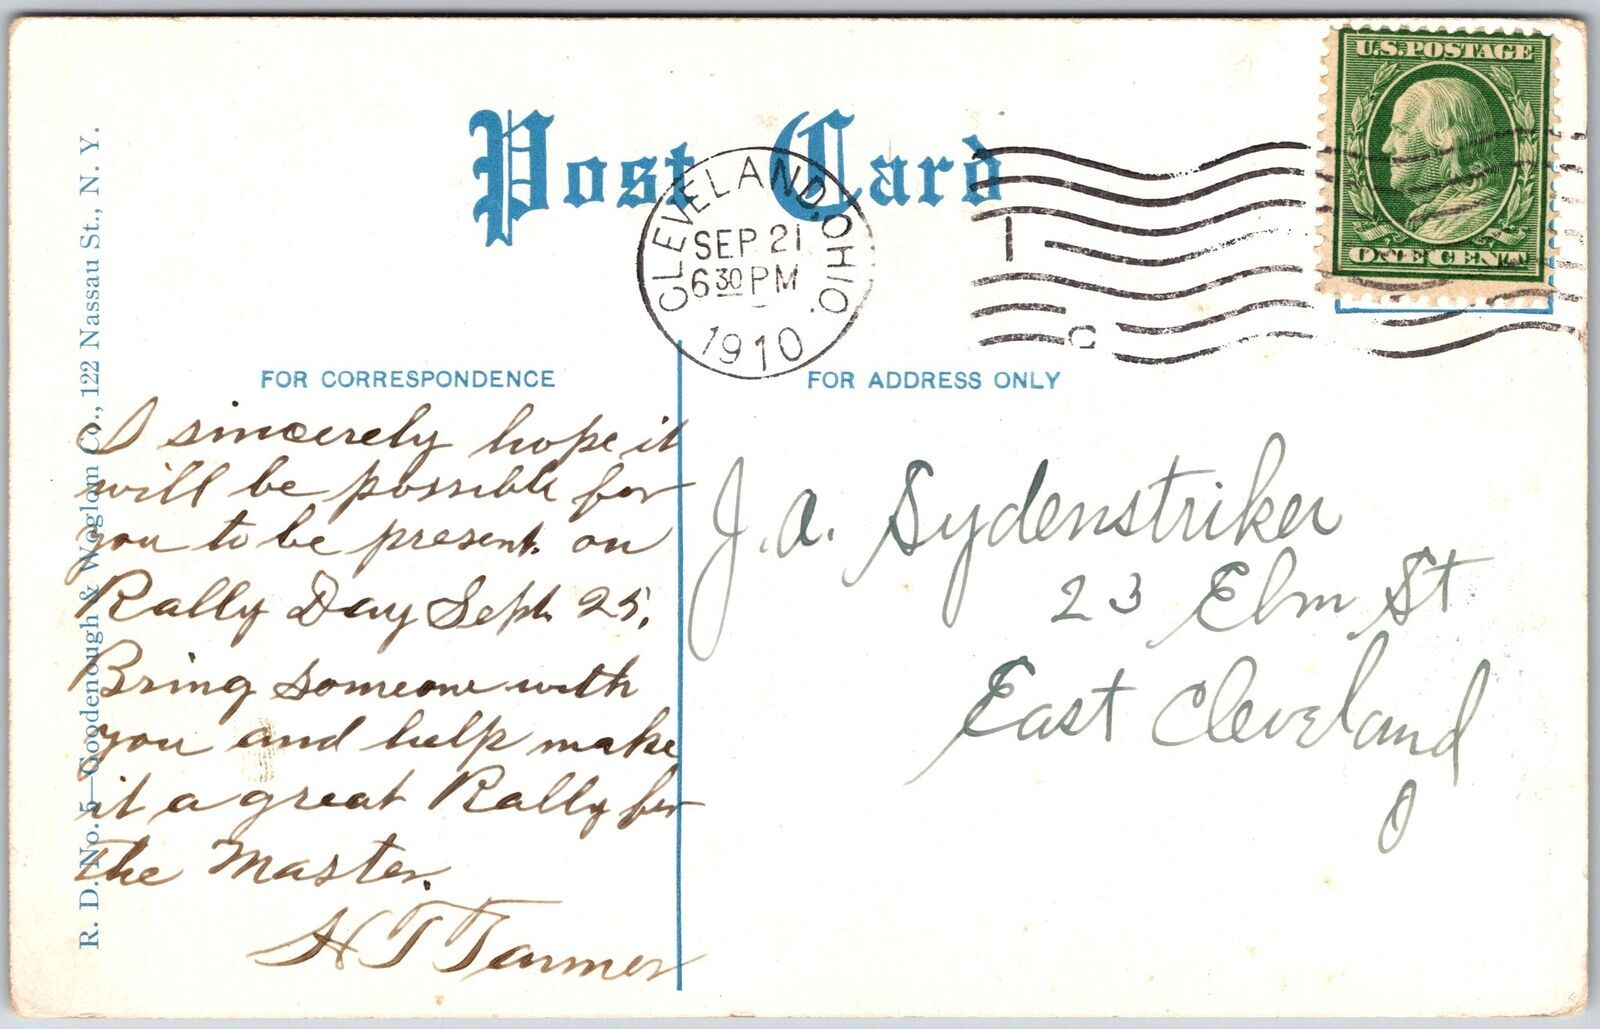 Post Card
U.S. POSTAGE
ONE CENT
CLEVELAND, OHIO.
SEP 21
6 30 PM
1910
1
C
FOR CORRESPONDENCE
FOR ADDRESS ONLY
R. D. No. 5—Goodenough & Woglom Co., 122 Nassau St., N. Y.
I sincerely hope it
will be possible for
you to be present on
Rally Day Sept. 25.
Bring someone with
you and help make
it a great Rally for
the Master.
H T
J. A. Sydenstriker
23 Elm St
East Cleveland
O